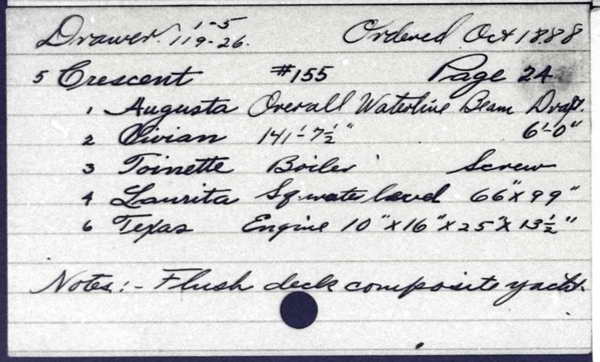 Drawer. 1-5 119-26. Ordered Oct 1888
5 Crescent #155 Page 24
1 Augusta Overall Waterline Beam Draft.
2 Vivian 141'-7½" 6'-0"
3 Toinette Boiler Screw
4 Laurita Sq. water 66" x 99"
6 Texas Engine 10" x 16" x 25" x 13½"
Notes:- Flush deck composite yacht.